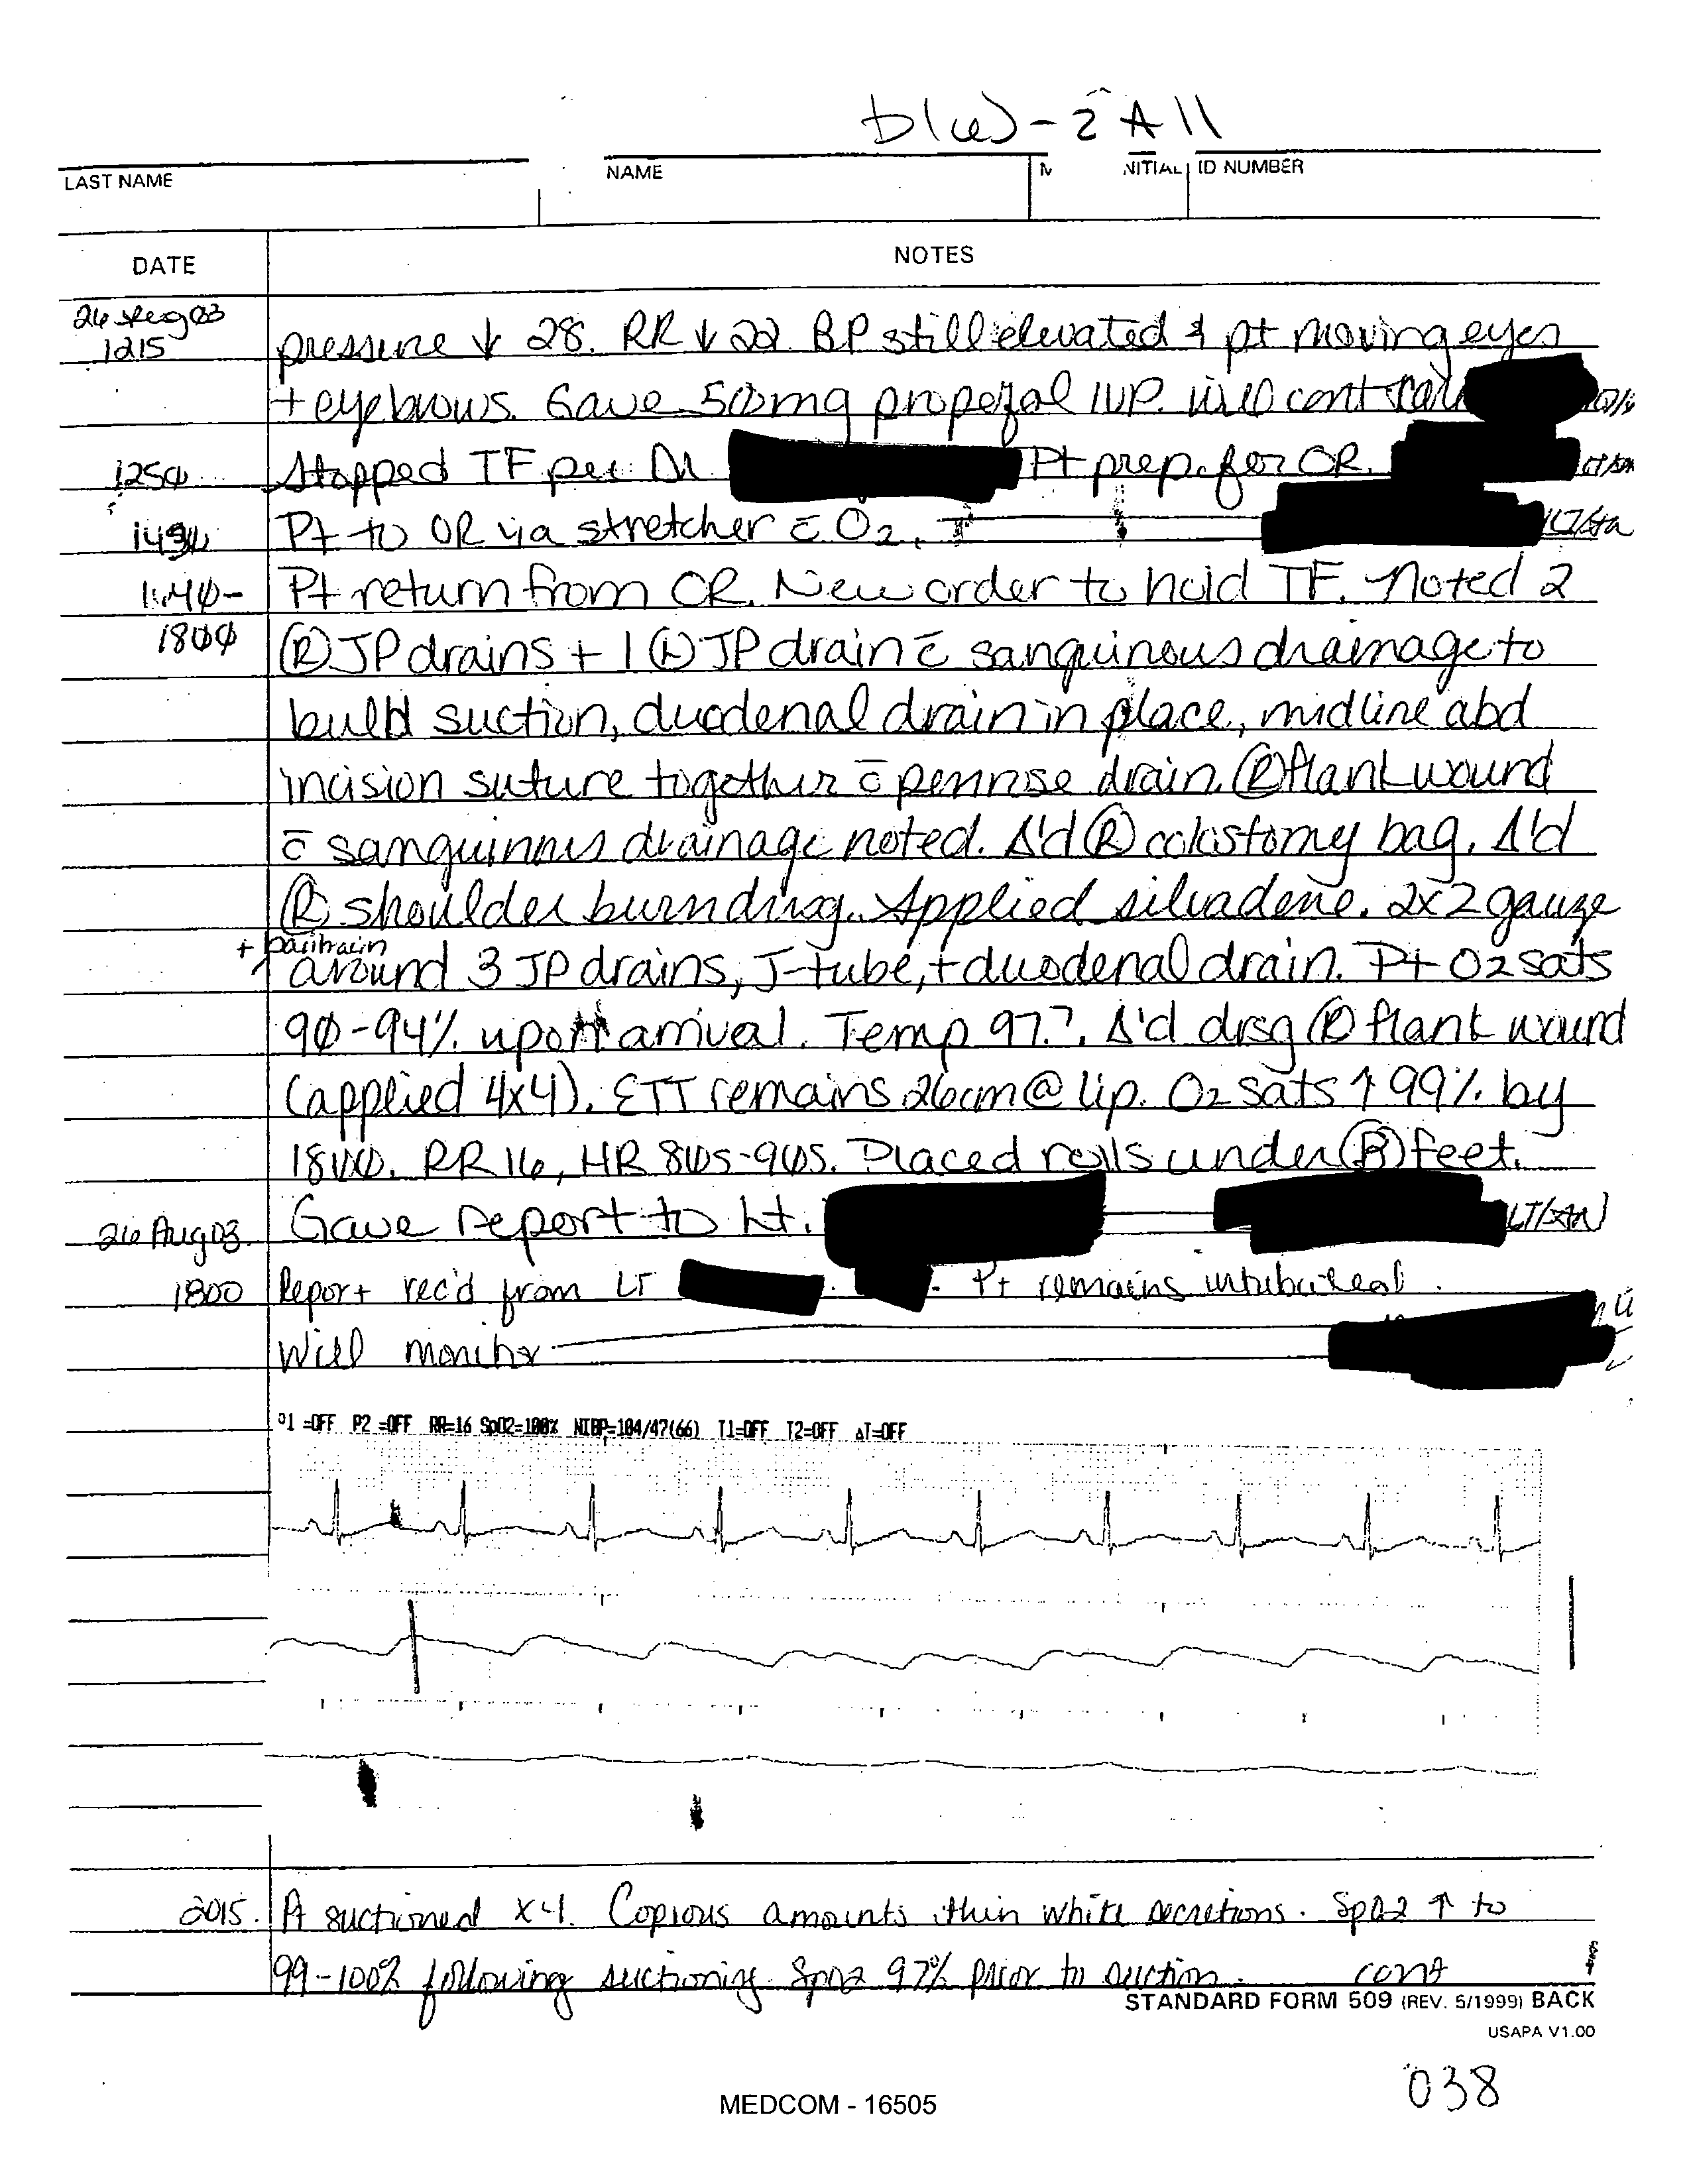 b(6)-2 All
LAST NAME NAME M NITIAL ID NUMBER
DATE NOTES
26 Aug 03
1215 pressure ↓ 28. RR ↓ 22. BP still elevated & pt moving eyes
+ eyebrows. Gave 50mg propofal IVP. Will cont
125φ Stopped TF per Dr Pt prep for OR.
Pt to OR via stretcher c̄ O2.
164φ- Pt return from OR. New order to hold TF. Noted 2
18φφ Ⓡ JP drains + 1 Ⓛ JP drain c̄ sanguinous drainage to
bulb suction, duodenal drain in place, midline abd
incision suture together c̄ pennrose drain. Ⓡ flank wound
c̄ sanguinous drainage noted. Δ'd Ⓡ colostomy bag. Δ'd
Ⓡ shoulder burn drsg. Applied silvadene. 2x2 gauze
+
around 3 JP drains, J-tube, + duodenal drain. Pt O2 sats
9φ-94% upon arrival. Temp 97.?. Δ'd drsg Ⓡ flank wound
(applied 4x4). ETT remains 26cm @ lip. O2 sats ↑ 99% by
18φφ. RR 16, HR 8φs-9φs. Placed rolls under Ⓑ feet.
26 Aug 03 Gave report to Lt. LT/
1800 Report rec'd from LT . Pt remains intubated.
Will monitor
P1 =OFF P2 =OFF RR=16 SpO2=100% NIBP=104/47(66) T1=OFF T2=OFF ΔT=OFF
2015. Pt suctioned x4. Copious amounts thin white secretions. SpO2 ↑ to
99-100% following suctioning. SpO2 97% prior to suction. cont
STANDARD FORM 509 (REV. 5/1999) BACK
USAPA V1.00
038
MEDCOM - 16505